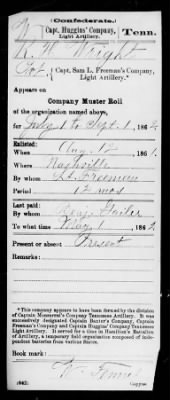 (Confederate.)
Capt. Huggins' Company,
Light Artillery.
Tenn.
R. W. Wright
Pvt, Capt. Sam L. Freeman's Company,
Light Artillery.*
Appears on
Company Muster Roll
of the organization named above,
for July 1 to Sept. 1, 186 2.
Enlisted:
When Aug. 12, 186 1.
Where Nashville
By whom Lt. Freeman
Period 12 mos
Last paid:
By whom
To what time May 1, 186 2.
Present or absent Present
Remarks:
*This company appears to have been formed by the division
of Captain Monsarrat's Company Tennessee Artillery. It was
successively designated Captain Baxter's Company, Captain
Freeman's Company and Captain Huggins' Company Tennessee
Light Artillery. It served for a time in Hamilton's Battalion
of Artillery, a temporary field organization composed of inde-
pendent batteries from various States.
Book mark:
(642)
Copyist.